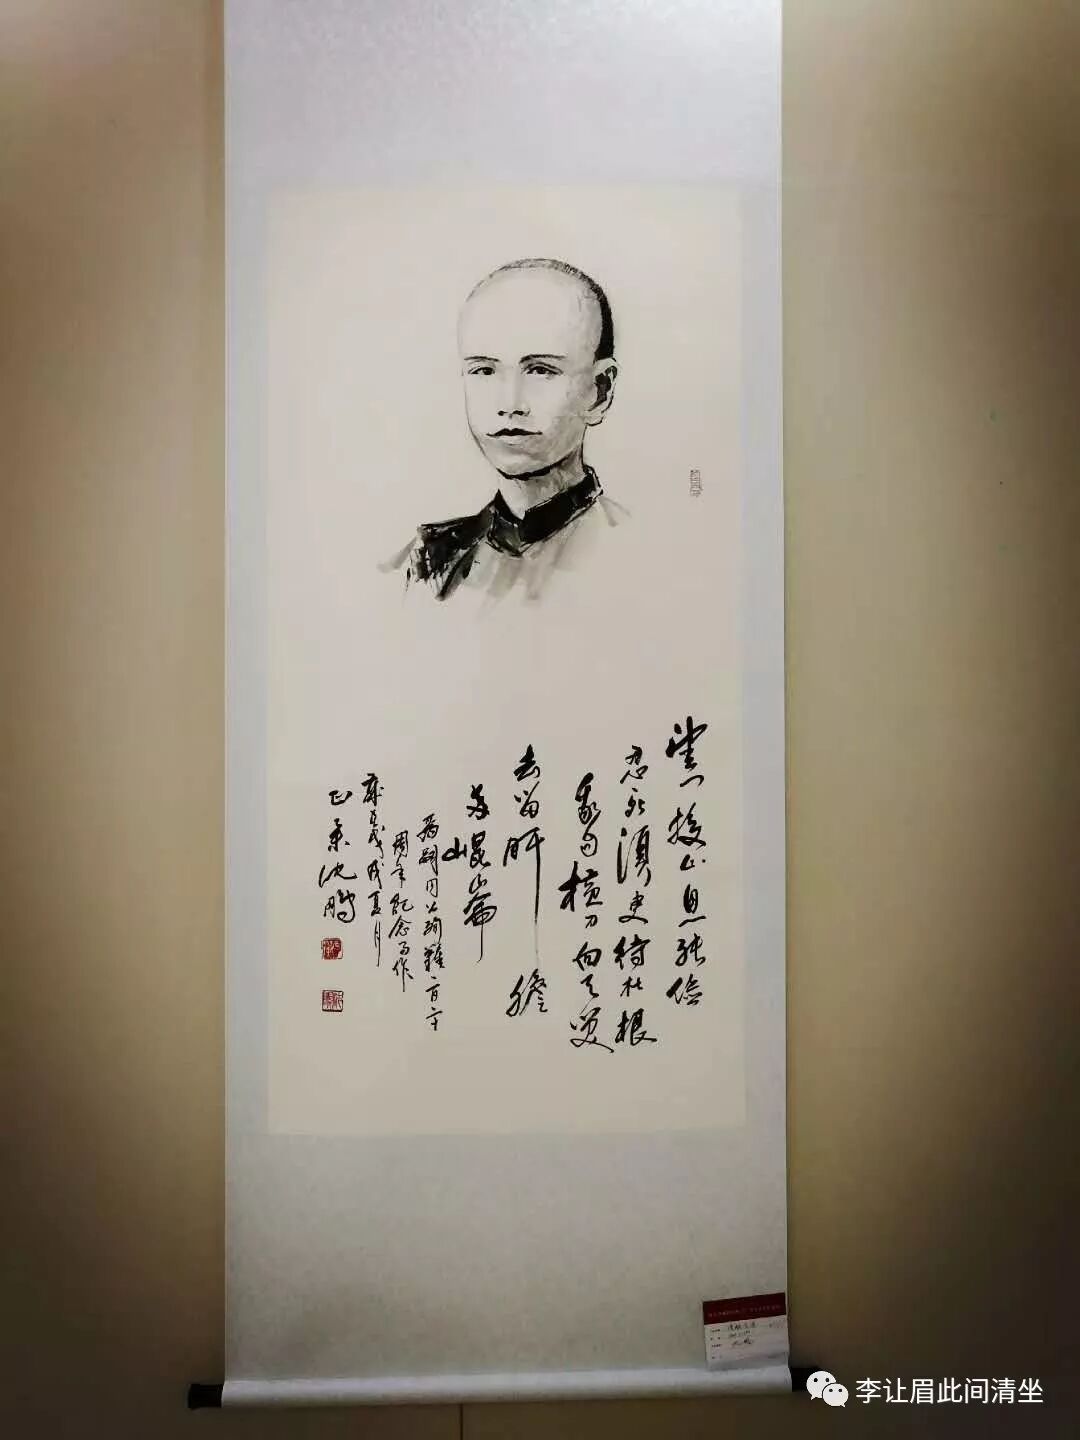 望门投止思张俭
忍死須臾待杜根
我自横刀向天笑
去留肝膽
两崐崙
為嗣同公殉難一百二十
周年纪念而作
歲在戊戌夏月
沈鹏
李让眉此间清坐